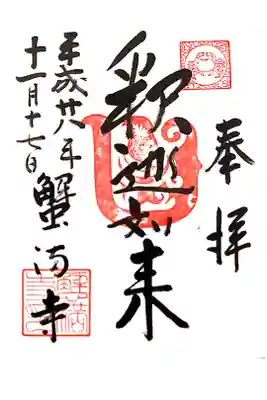 奉拝
釈迦如来
平成廿八年
十一月十七日
蟹満寺